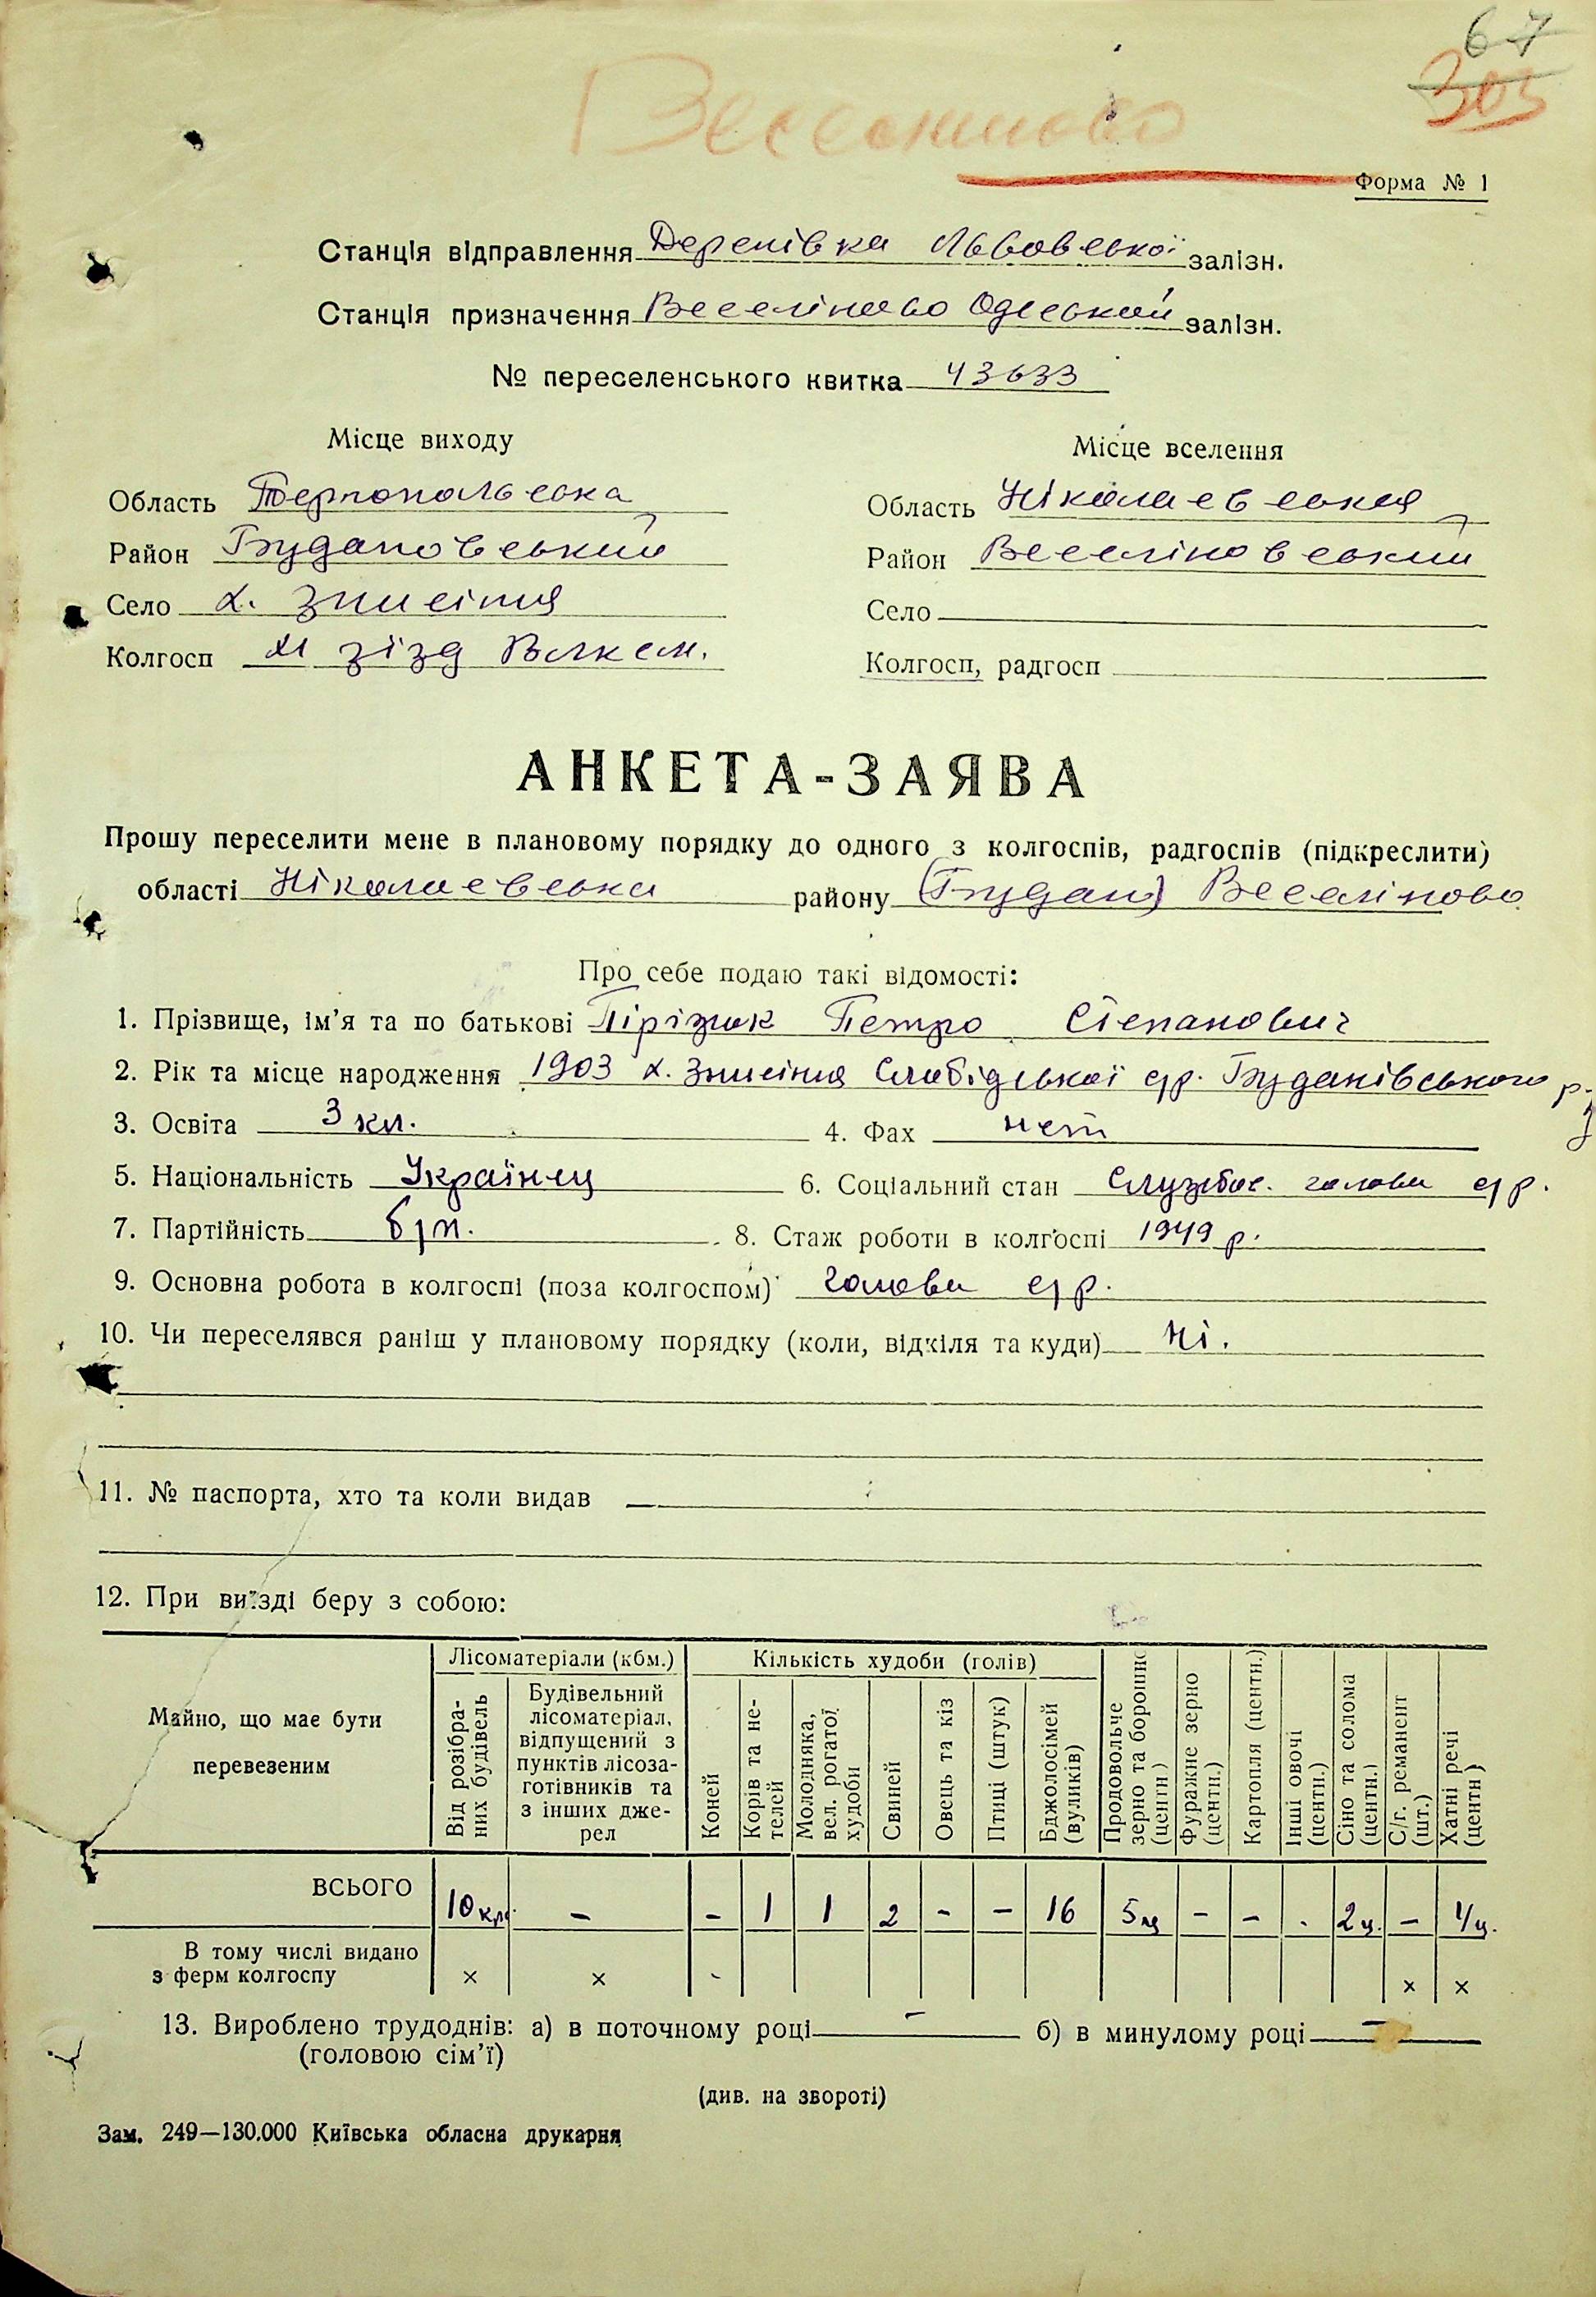 67
305
Веселиново
Форма № 1
Станція відправлення Деренівка Львовської залізн.
Станція призначення Веселіново Одеський залізн.
№ переселенського квитка 43633
Місце виходу
Область Тернопольська
Район Будановський
Село х. Знисіння
Колгосп XI зїзд Влксм.
Місце вселення
Область Ніколаевськая
Район Веселіновський
Село
Колгосп, радгосп
АНКЕТА-ЗАЯВА
Прошу переселити мене в плановому порядку до одного з колгоспів, радгоспів (підкреслити)
області Ніколаевська району (Будан) Веселіново
Про себе подаю такі відомості:
1. Прізвище, ім’я та по батькові Пірізник Петро Степанович
2. Рік та місце народження 1903 х. Знисіння Слобідської с/р. Буданівського р-
3. Освіта 3 кл. 4. Фах нет
5. Національність Українец 6. Соціальний стан Службов. голова с/р.
7. Партійність б/п. 8. Стаж роботи в колгоспі 1949 р.
9. Основна робота в колгоспі (поза колгоспом) голова с/р.
10. Чи переселявся раніш у плановому порядку (коли, відкіля та куди) Ні.
11. № паспорта, хто та коли видав
12. При виїзді беру з собою:
Майно, що має бути перевезеним
Лісоматеріали (кбм.)
Від розібраних будівель
Будівельний лісоматеріал, відпущений з пунктів лісозаготівників та з інших джерел
Кількість худоби (голів)
Коней
Корів та нетелей
Молодняка, вел. рогатої худоби
Свиней
Овець та кіз
Птиці (штук)
Бджолосімей (вуликів)
Продовольче зерно та борошно (центн)
Фуражне зерно (центн.)
Картопля (центн.)
Інші овочі (центн.)
Сіно та солома (центн.)
С/г. реманент (шт.)
Хатні речі (центн)
ВСЬОГО 10 - - 1 1 2 - - 16 5ц - - - 2ц. - 1/ц.
В тому числі видано з ферм колгоспу × × - × ×
13. Вироблено трудоднів: а) в поточному році — б) в минулому році —
(головою сім’ї)
(див. на звороті)
Зам. 249—130.000 Київська обласна друкарня